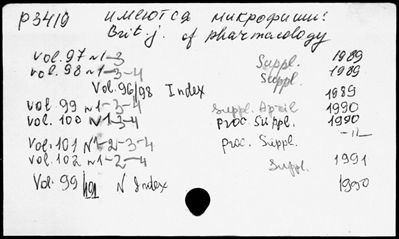 р3419 имеются микрофиши:
Brit. j. of pharmacology
vol. 97 N1-3 Suppl. 1989
vol. 98 N1-3-4 Suppl. 1989
Vol. 96/98 Index 1989
vol. 99 N1-3-4 Suppl. April 1990
vol. 100 N1-3-4 Proc. Suppl. 1990
vol. 101 N1-2-3-4 Proc. Suppl. -"-
vol. 102 N1-2-4 Suppl. 1991
Vol. 99/101 N Index 1990